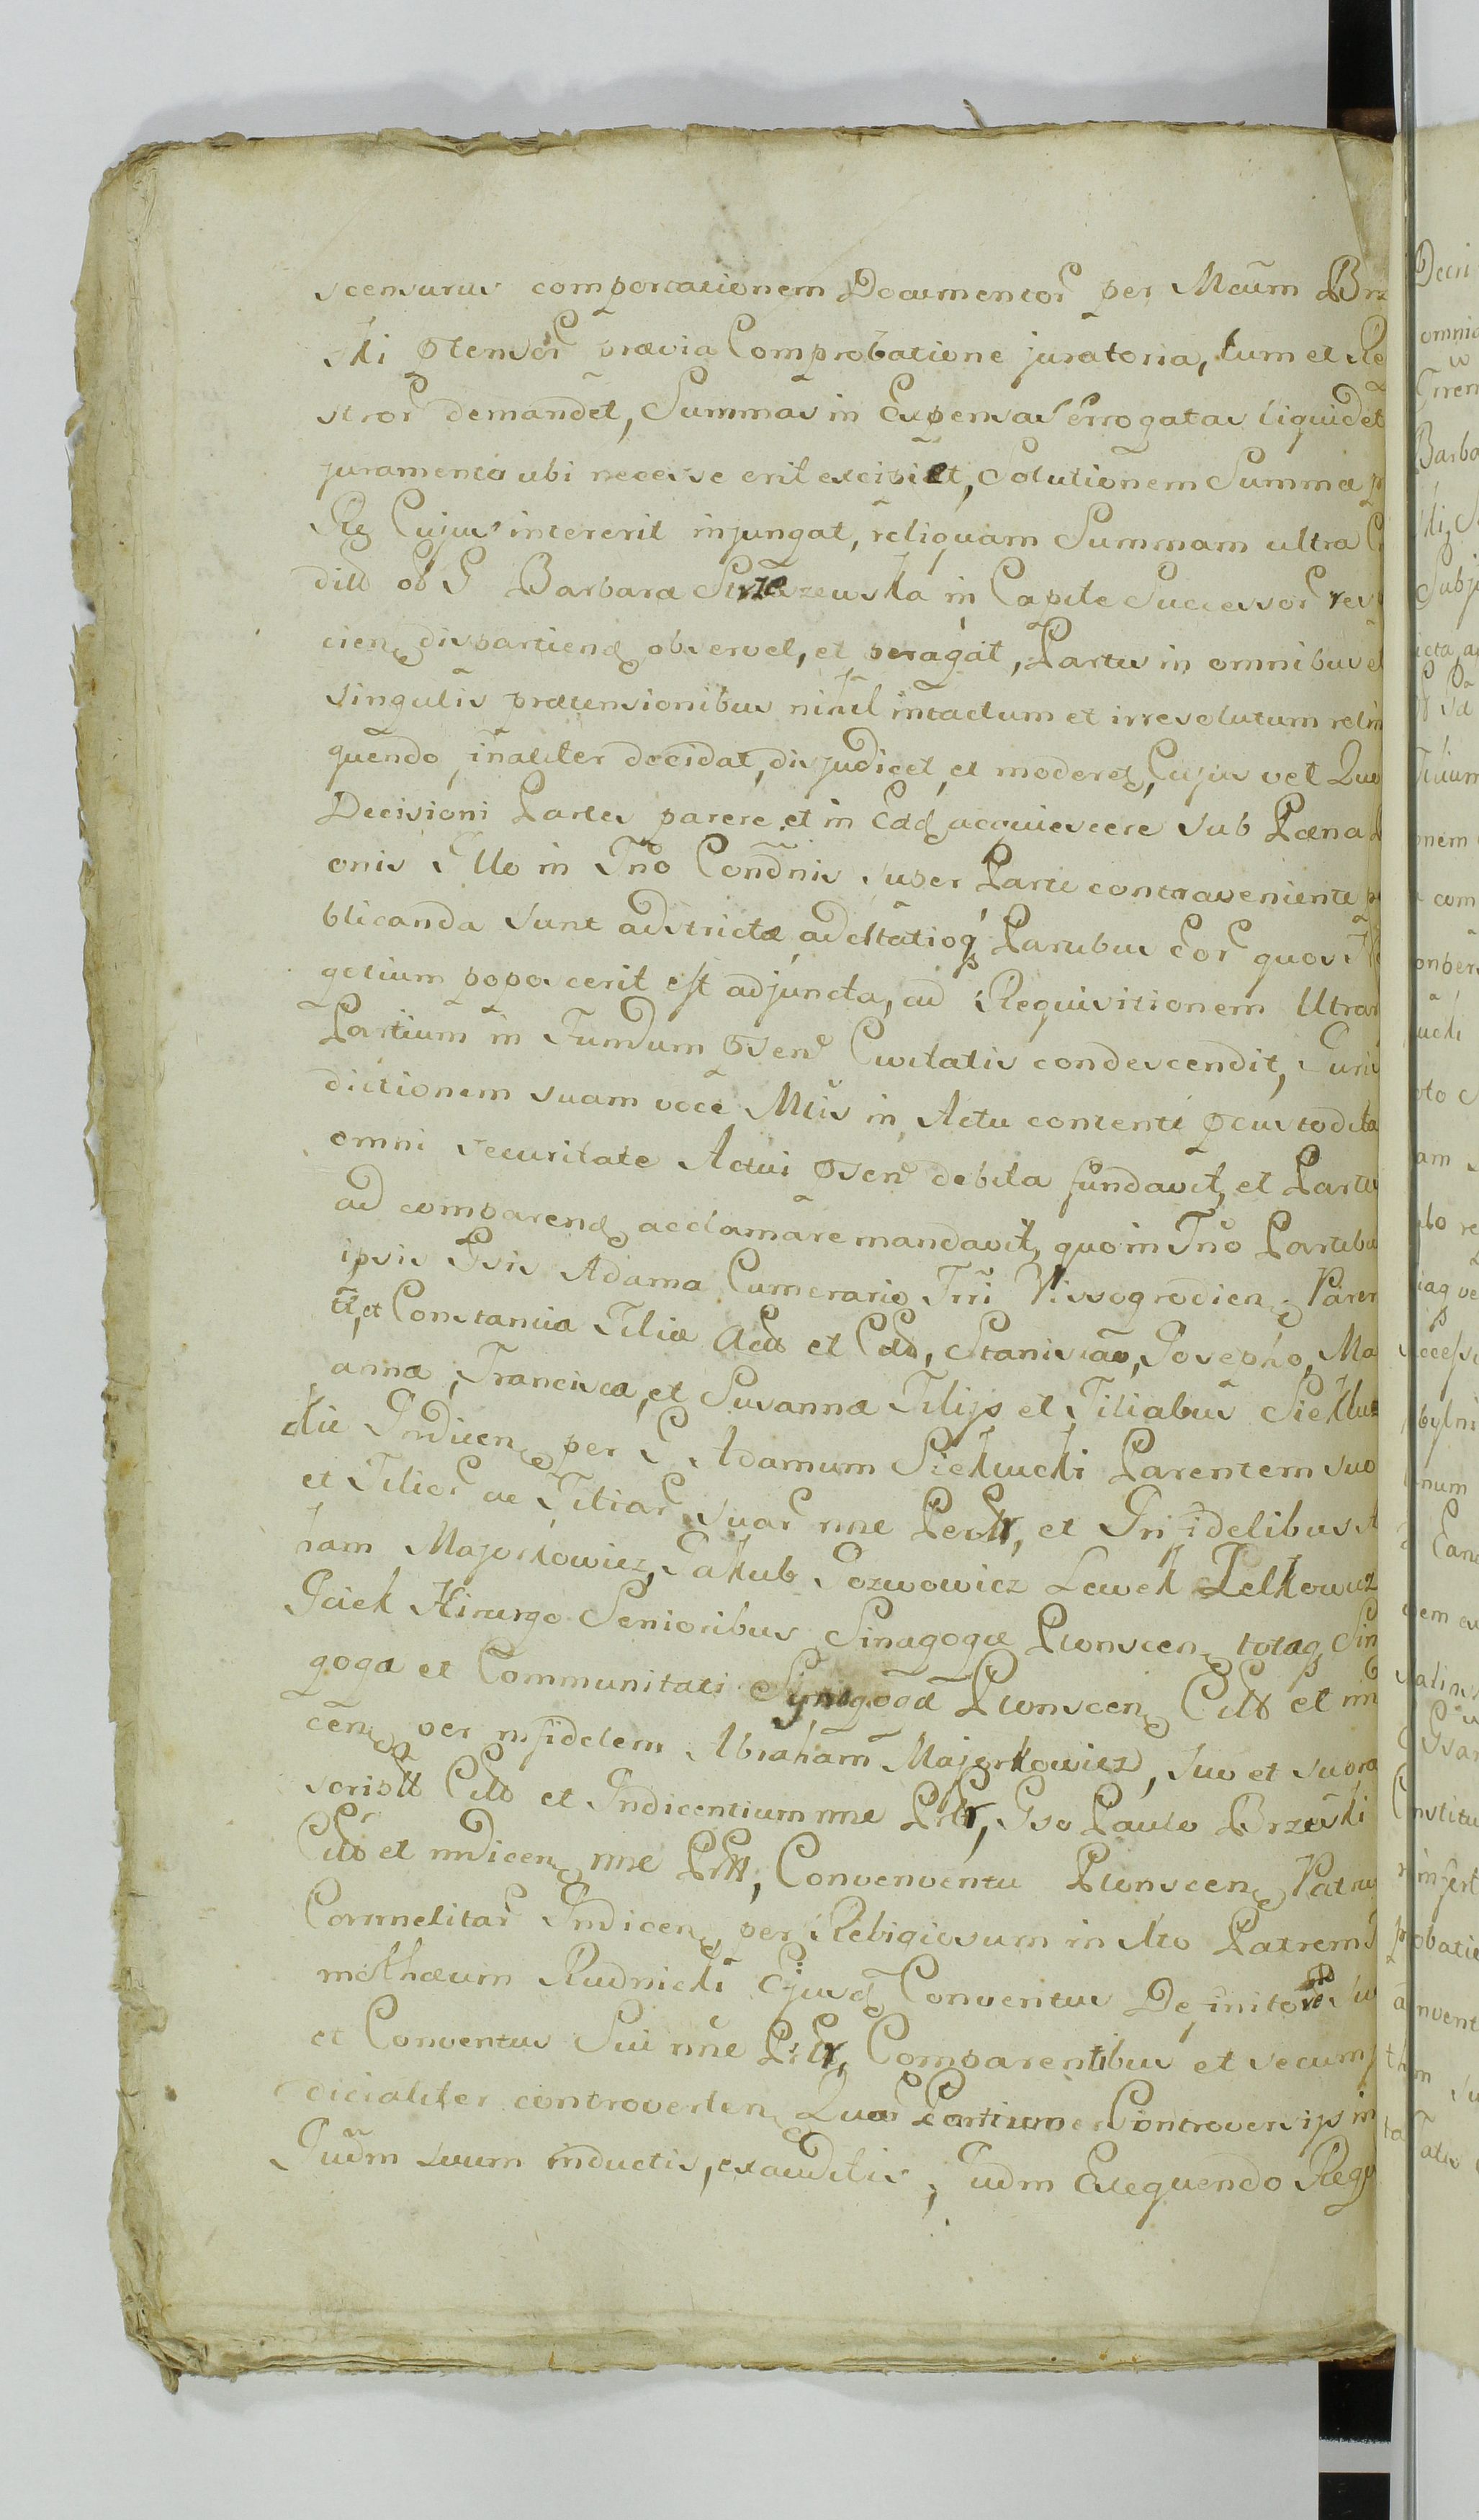 scensurus comportationem Documentor per Mcum Brz
ski ptensor prævia Comprobatione juratoria, tum et Re
stror demandet, Summas in Expensas errogatas liquidet
juramenta ubi necesse erit excipiet, Solutionem Summæ p
Re Cujus intererit injungat, reliquam Summam ultra C
ditt ob G Barbaræ Strzerzewska in Capite Successor res
cien dispartiend observet, et peragat, Partes in omnibus et
singulis prætensionibus nihil intactum et irresolutum relin
quendo, inaliter decidat, disjudicet, et moderet, Cujus vel Quo
Decisioni Partes parere et in Ead acquiescere sub Pæna
onis Illo in Tno Condnis super Parte contraveniente p
blicanda sunt adstrictæ adcitatioq Partibus Eor quos
gotium poposcerit est adjuncta, ad Requisitionem Utrar
Partium in Fundum psen Civitatis condescendit, Juris
dictionem suam voce Mtis in Actu contenti pcustodita
omni securitate Actui psen debita fundavit, et Partes
ad comparend acclamare mandavit, quo in Tno Partibu
ipsis Gsis Adama Cumerario Trri Wissogrodien Paren
ti, et Constantia Filiæ Actt et Citt, Stanislao, Josepho, Ma
anna, Francisca, et Susanna Filijs et Filiabus Siekluc
kie Indicen per G Adamum Sieklucki Parentem suo
et Filior ac Filiar suar nne Persttr, et Infidelibus A
ham Majorkowicz, Jakub Jozwowicz Lewek Lelkowicz
Jciek Hirurgo Senioribus Sinagogæ Plonscen totaq Sin
goga et Communitati Synagogæ Plonscen Citt et in
cen per infidelem Abraham Majorkowicz, suo et supra
scriptt Citt et Indicentium nne Prttr, Gso Paulo Brzeski
Citt et indicen nne Prttt, Convenventu Plonscen Patru
Carmelitar Indicen, per Religiosum in Xto Patrem
mothæum Rudnicki Ejusd Conventus Definitore su
et Conventus Sui nne Prttr, Comparentibus et secum
dicialiter controverten Quar Partium Controversijs in
Judm suum inductis, exauditis, Judm Exequendo Reg